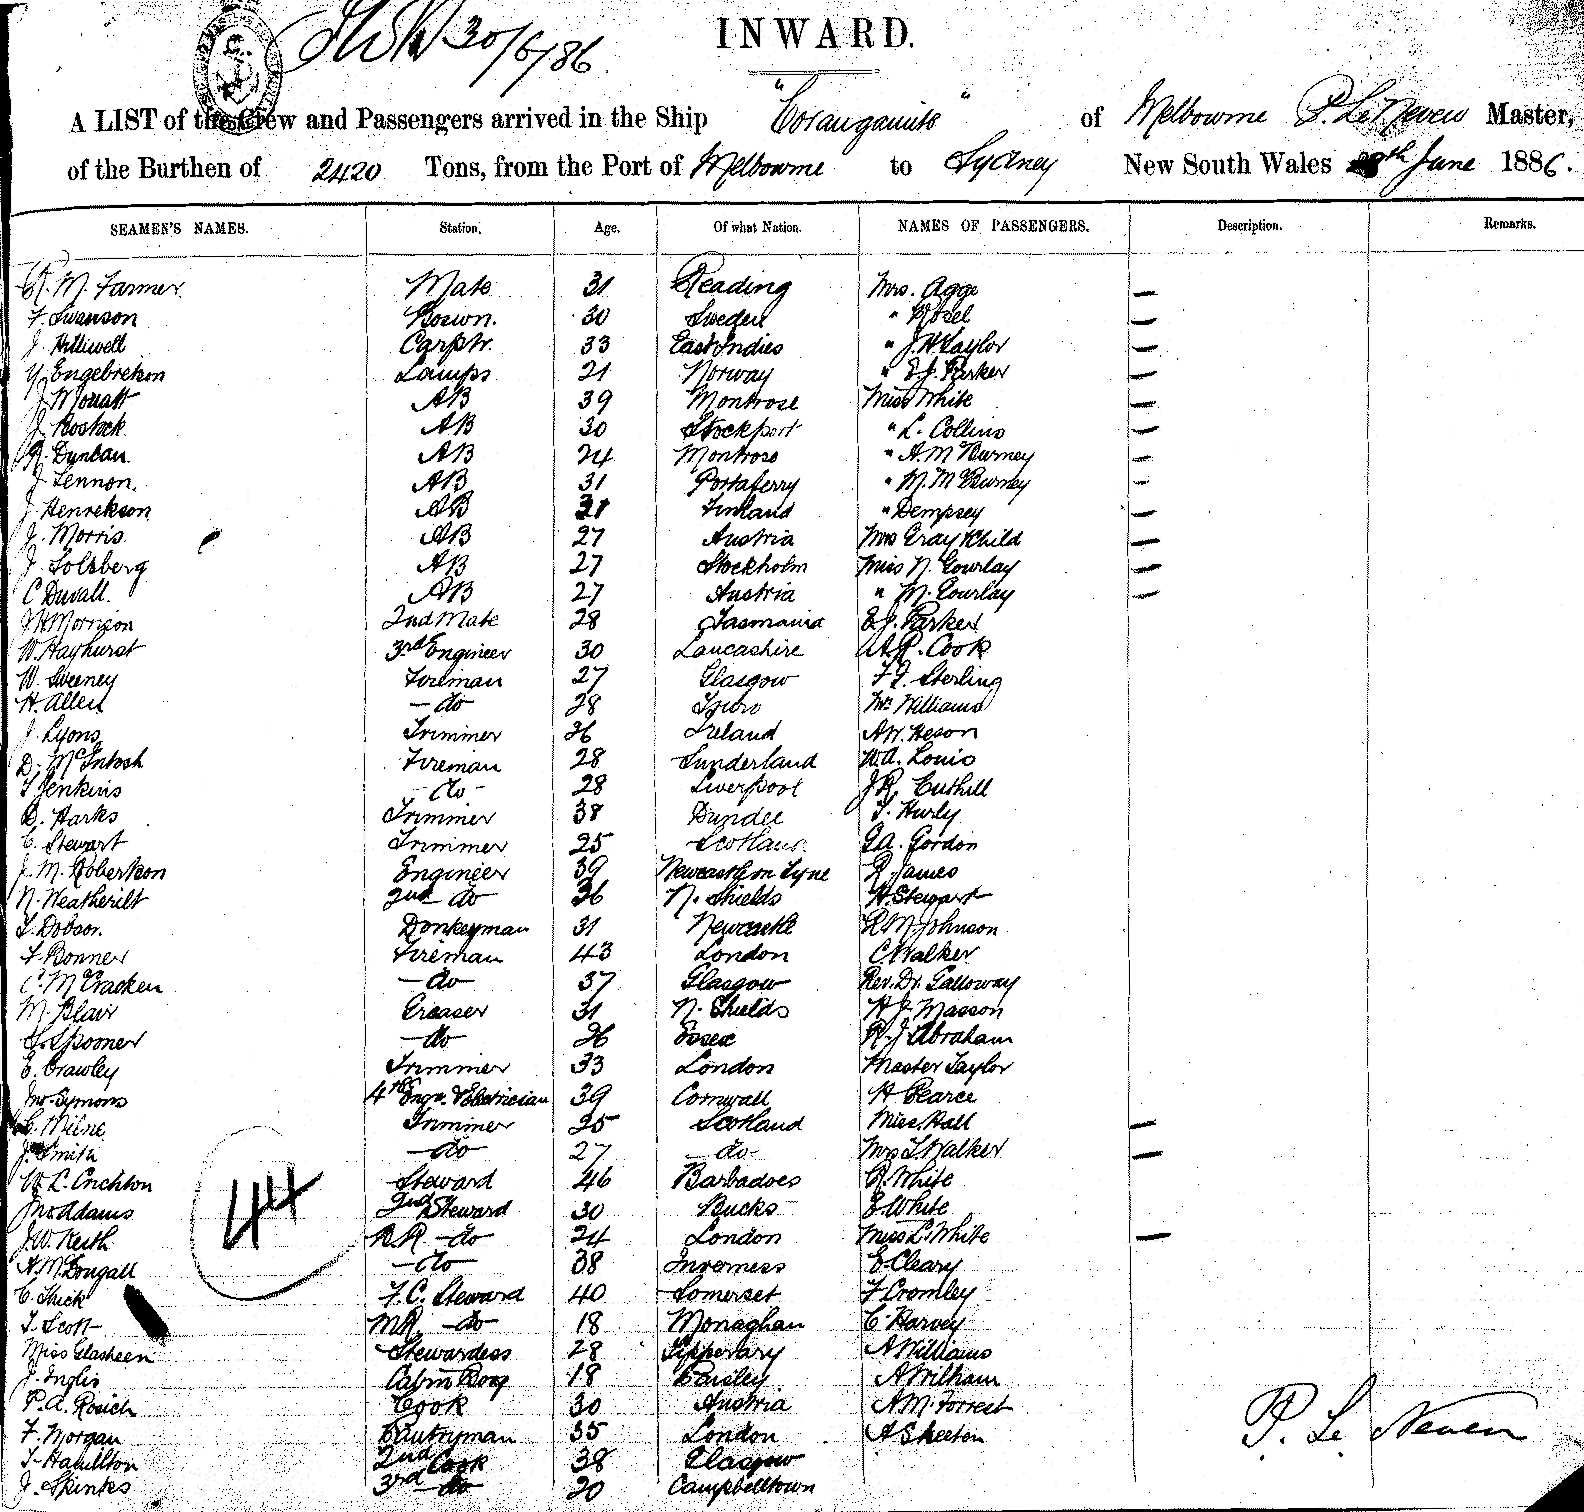 30/6/86
INWARD.
A LIST of the Crew and Passengers arrived in the Ship "Corangamite" of Melbourne P. Le Neveu Master,
of the Burthen of 2420 Tons, from the Port of Melbourne to Sydney New South Wales 28th June 1886.
SEAMEN'S NAMES. Station. Age. Of what Nation. NAMES OF PASSENGERS. Description. Remarks.
M. Farmer Mate 31 Reading Mrs. Agge —
F. Swanson Boswn. 30 Sweden " Rosel —
J. Hilliwell Carptr. 33 East Indies " J. H Taylor —
Engebretson Lamps 21 Norway " E J. Parker —
J. Mouatt AB 39 Montrose Miss White —
J. Rostock AB 30 Stockport " L. Collins —
R. Duncan AB 24 Montrose " A. McBurney —
J. Lennon. AB 31 Portaferry " M. McBurney —
J. Henrekson AB 31 Finland " Dempsey —
J. Morris AB 27 Austria Mrs Gray & Child —
J. Solsberg AB 27 Stockholm Miss N. Gourlay —
C Duvall. AB 27 Austria " M. Gourlay —
J H Morrison 2nd Mate 28 Tasmania E J. Parker
W. Hayhurst 3rd Engineer 30 Lancashire A. R. Cook
W. Sweeney Fireman 27 Glasgow F. F. Sterling
H. Allen — do 28 Truro Williams
J. Lyons Trimmer 26 Ireland A W. Heson
D. McIntosh Fireman 28 Sunderland W. A. Louis
T Jenkins — do - 28 Liverpool J R. Cuthill
D. Harks Trimmer 38 Dundee T. Hurly
C. Stewart Trimmer 25 Scotland G A. Gordon
J. M. Robertson Engineer 39 Newcastle on Tyne R. James
N. Weatherilt 2nd do 36 N. Shields H. Stewart
T. Dobson. Donkeyman 31 Newcastle R M. Johnson
F. Bonner Fireman 43 London C Walker
C. McCracken — do 37 Glasgow Rev. Dr. Galloway
M. Blair Greaser 31 N. Shields H J. Masson
J. Spooner — do 26 Essex R. J Abraham
E. Crawley Trimmer 33 London Master Taylor
Jno Symons 4th Engr. & Electrician 39 Cornwall H Pearce
G. Milne Trimmer 25 Scotland Miss. Hall —
J. Smith — do 27 — do - Mrs T Walker —
W. L. Crichton Steward 46 Barbadoes R. White
Jno Adams 2nd Steward 30 Bucks E White
J. W. Keith RR — do 24 London Miss L. White —
A. McDougall — do 38 Inverness E Cleary
C. Shick F. C. Steward 40 Somerset F Cromley
T. Scott MR — do 18 Monaghan C Harvey
Miss Glasheen Stewardess 28 Tipperary A Williams
J. Inglis Cabin Boy 18 Paisley A Milham
P. A. Rosich Cook 30 Austria A M. Forrest
F. Morgan Pantryman 35 London A Skeeton
T. Hamilton 2nd Cook 38 Glasgow
J. Spinks 3rd — do 20 Campbelltown
44
P. Le Neveu